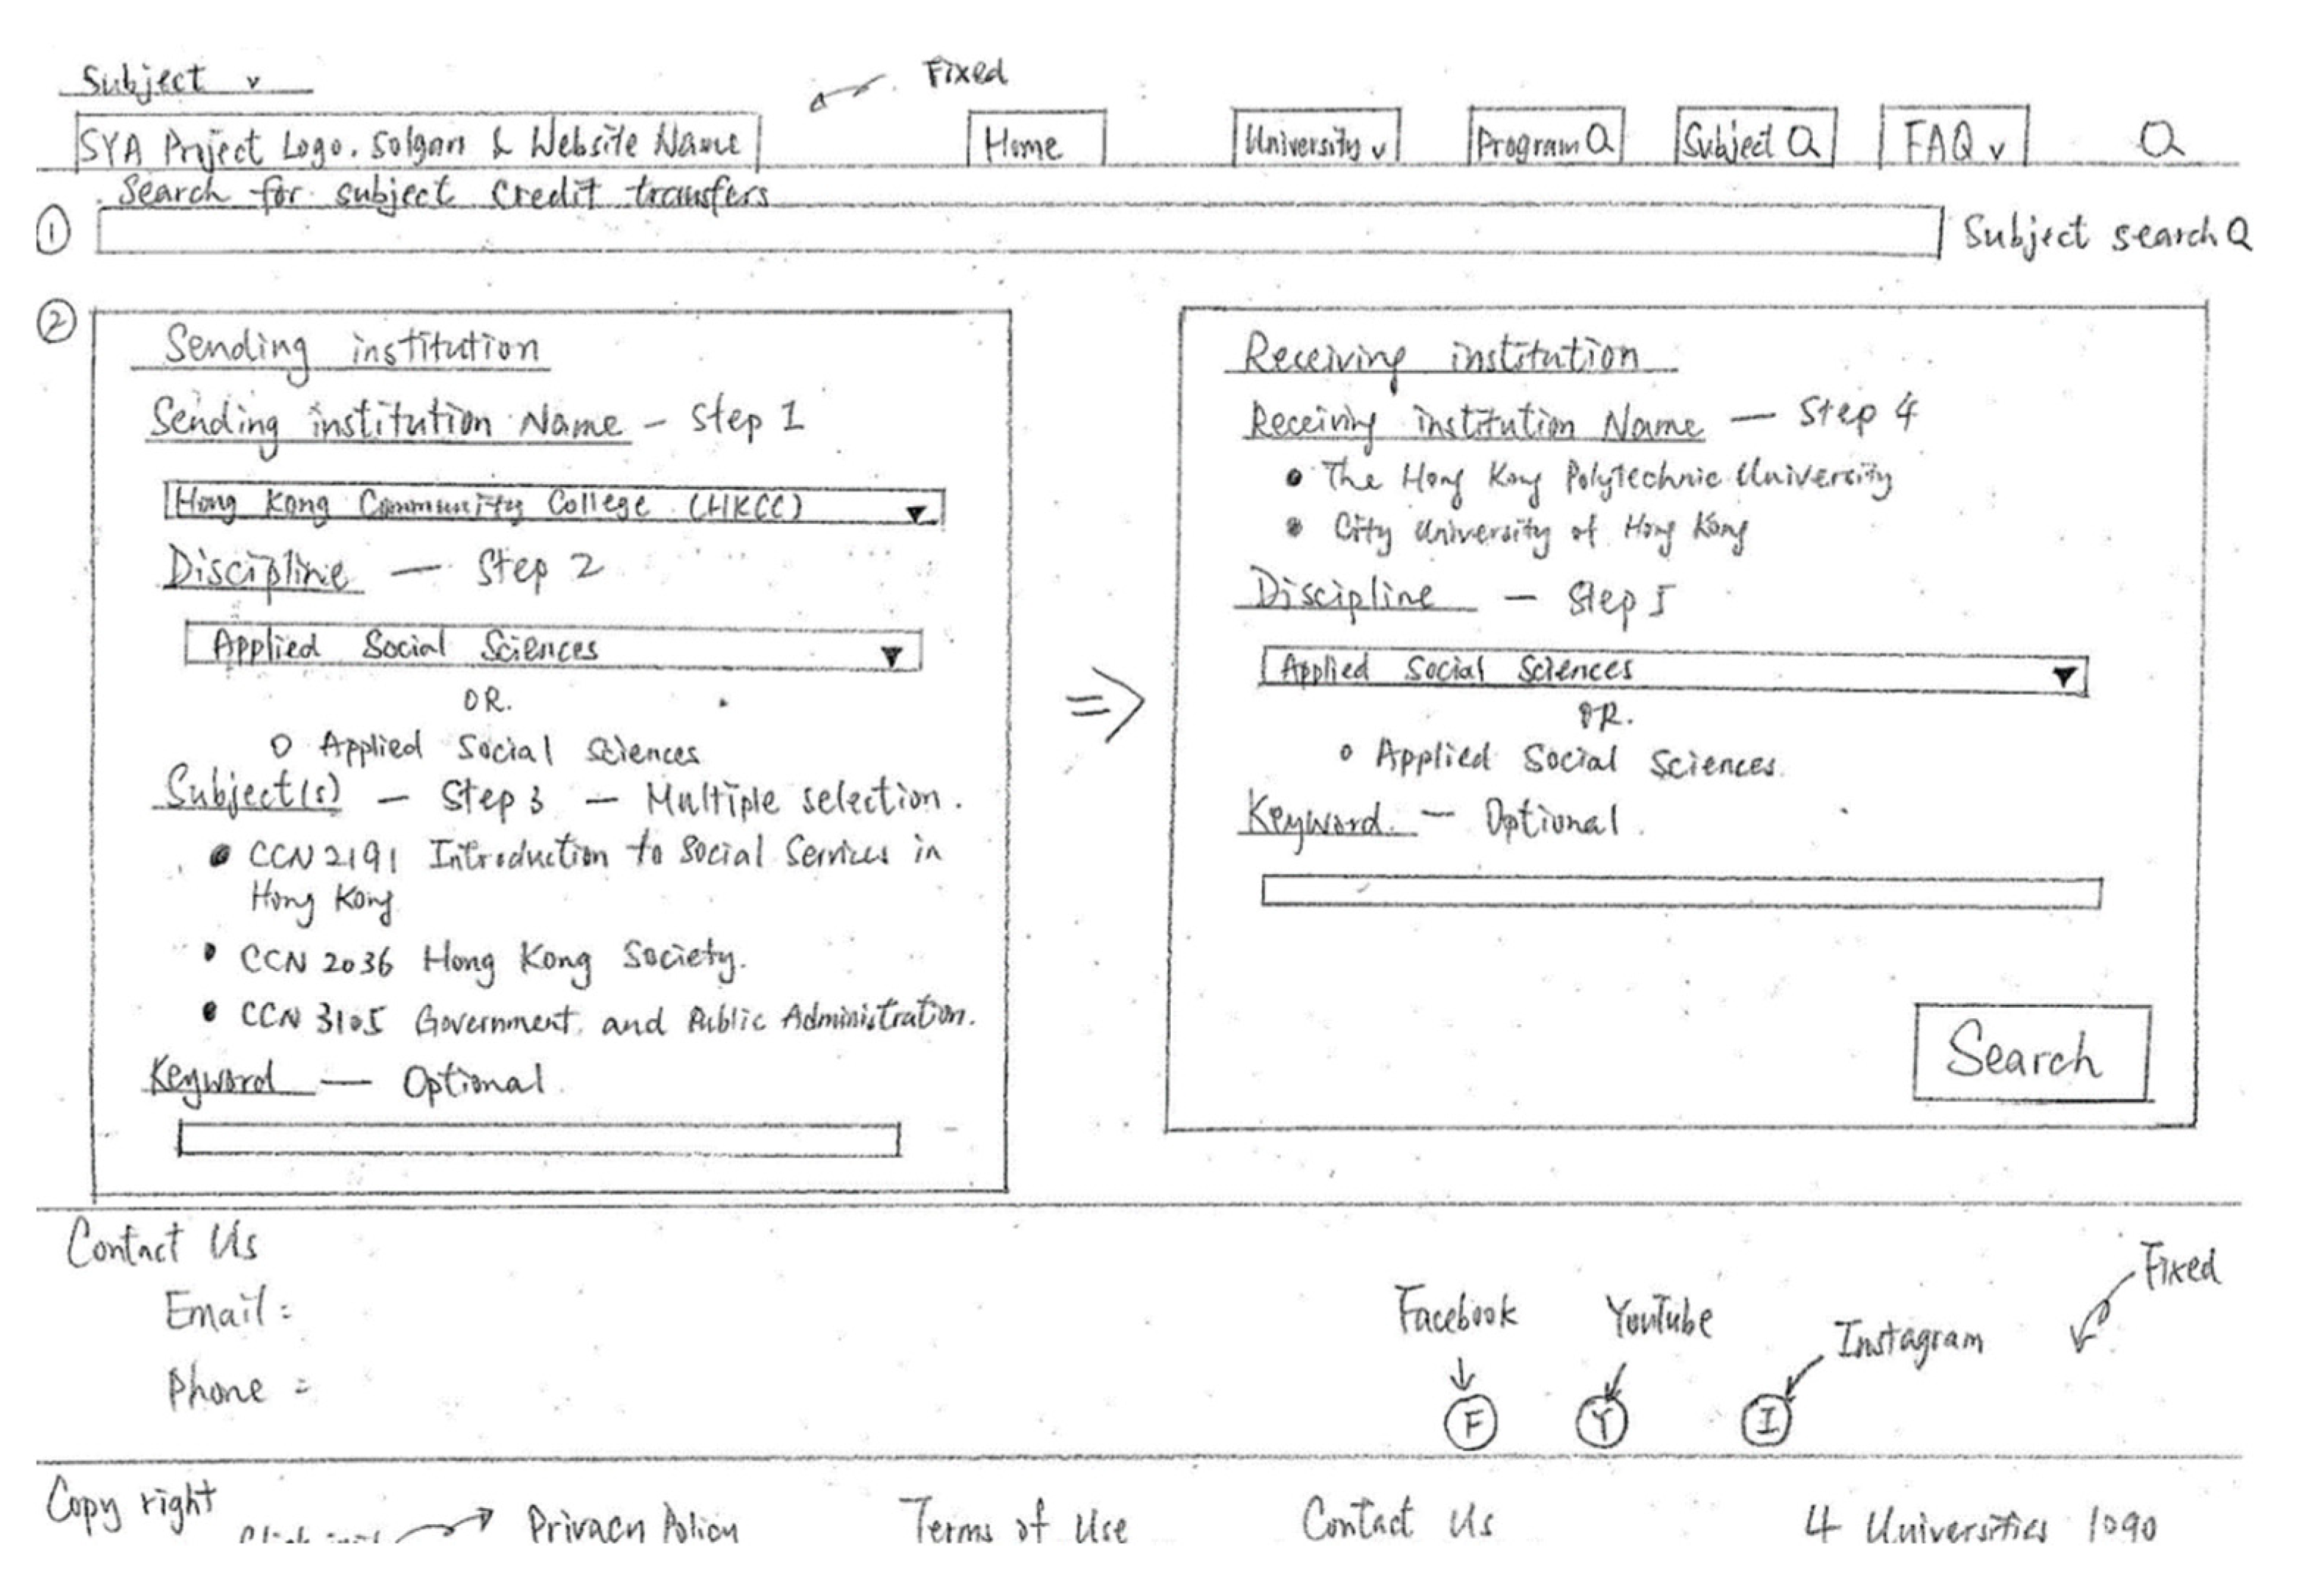 Subject v
Fixed
SYA Project Logo. Solgan & Website Name
Home
University v
Program Q
Subject Q
FAQ v
Search for subject Credit transfers
①
Subject search Q
②
Sending institution
Sending institution Name - Step 1
Hong Kong Community College (HKCC)
Discipline — Step 2
Applied Social Sciences
OR.
Applied Social Sciences
Subject(s) - Step 3 - Multiple selection.
CCN 2191 Introduction to Social Services in
Hong Kong
CCN 2036 Hong Kong Society.
CCN 3105 Government and Public Administration.
Keyword — Optional
=>
Receiving institution
Receiving institution Name — Step 4
The Hong Kong Polytechnic University
City University of Hong Kong
Discipline - Step 5
Applied Social Sciences
OR.
Applied Social Sciences
Keyword - Optional
Search
Contact Us
Email =
Phone =
Facebook
YouTube
Instagram
Fixed
F
Y
I
Copy right
Privacy Policy
Terms of Use
Contact Us
4 Universities 1090